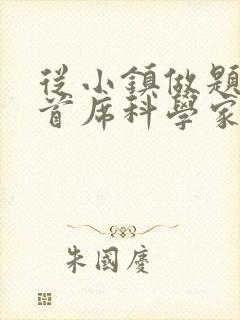 從小鎮做題
首席科學家
朱國慶